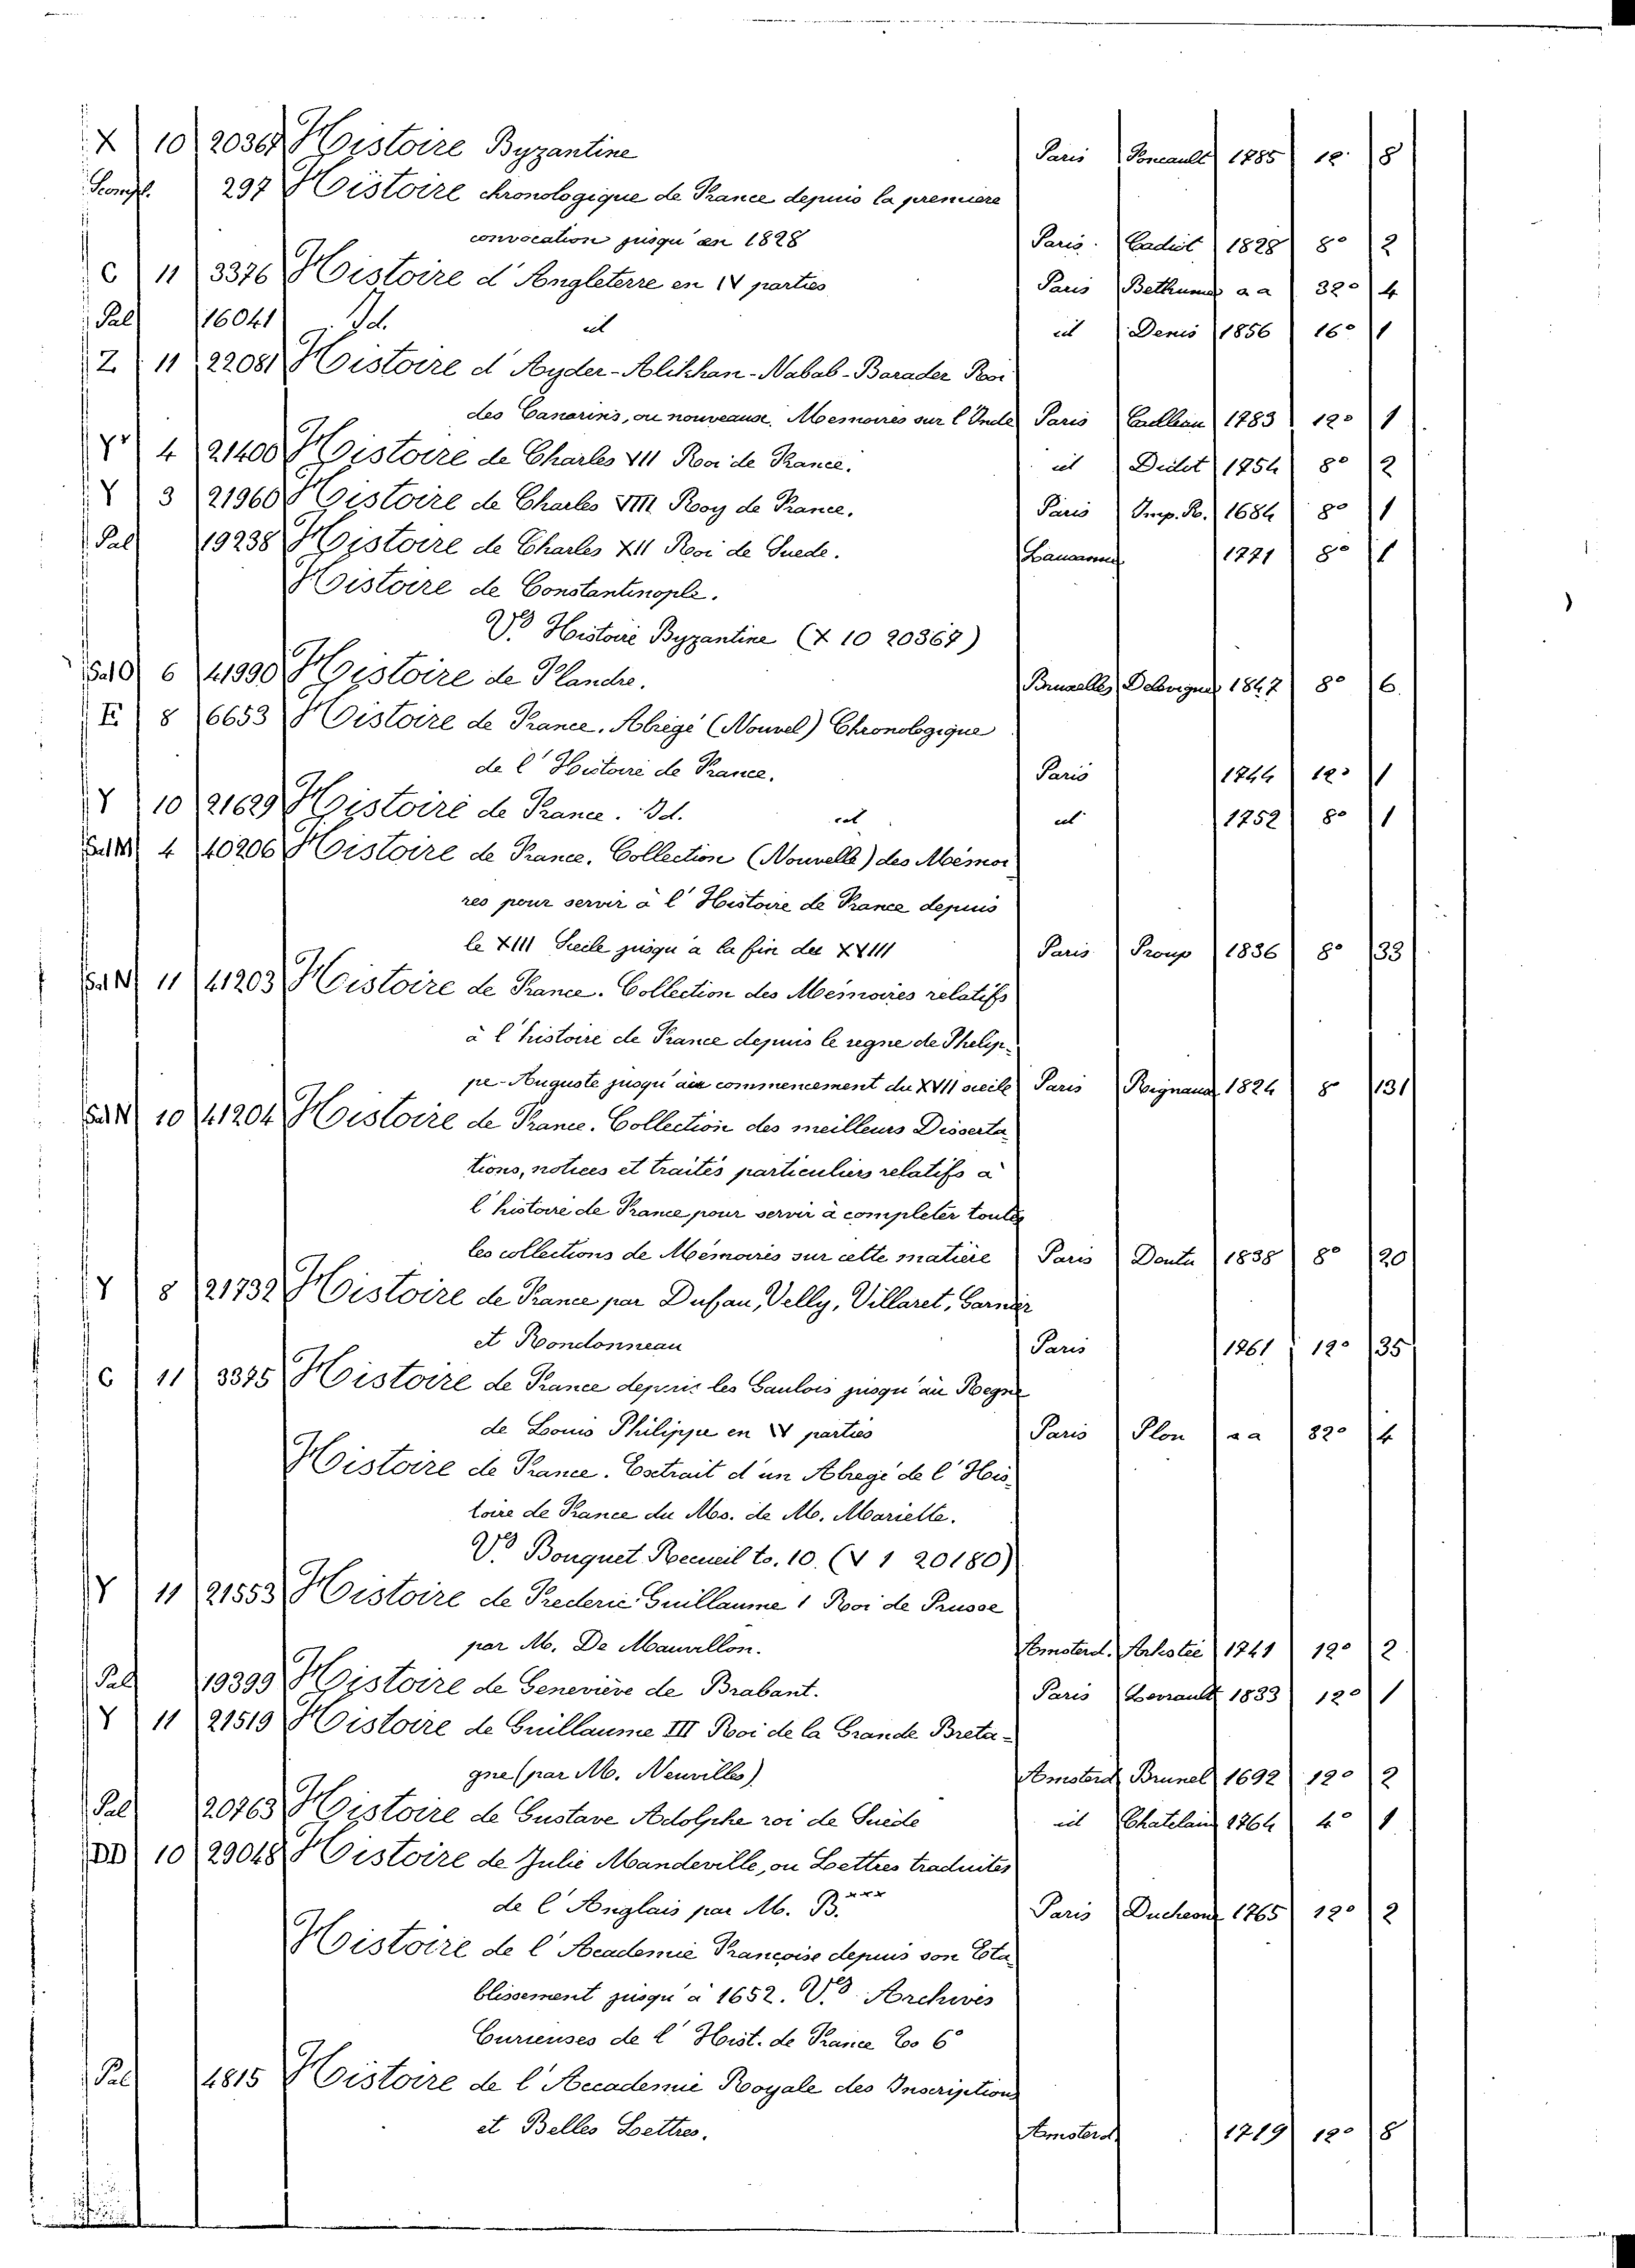 X 10 20367 Histoire Byzantine Paris Foucault 1785 12. 8
297 Histoire chronologique de France depuis la premiere
convocation jusqu'en 1828 Paris. Cadiot 1828 8º 2
C 11 3376 Histoire d'Angleterre en IV parties Paris Bethune a a 32º 4
Pal 16041 Id. id id Denis 1856 16º 1
Z 11 22081 Histoire d'Ayder-Alikhan-Nabab-Barader Roi
des Canarins, ou nouveause. Memoires sur l'Inde Paris 1783 12º 1
Yr 4 21400 Histoire de Charles VII Roi de France. id Didot 1754 8º 2
Y 3 21960 Histoire de Charles VIII Roy de France. Paris Imp. R. 1684 8º 1
Pal 19238 Histoire de Charles XII Roi de Suede. Lausanne 1771 8º 1
Histoire de Constantinople.
Vº Histoire Byzantine (X 10 20367)
Sal O 6 41990 Histoire de Flandre. Bruxelles Delevigne 1847 8º 6.
E 8 6653 Histoire de France. Abrégé (Nouvel) Chronologique
de l'Histoire de France. Paris 1744 12º 1
Y 10 21629 Histoire de France. Id. id id 1752 8º 1
Sal M 4 40206 Histoire de France. Collection (Nouvelle) des Mémoi
res pour servir à l'Histoire de France depuis
le XIII Siecle jusqu'a la fin du XVIII Paris Proup 1836 8º 33
Sal N 11 41203 Histoire de France. Collection des Mémoires relatifs
à l'histoire de France depuis le regne de Philip-
pe-Auguste jusqu'au commencement du XVII siecle Paris Rignaud 1824 8 131
Sal N 10 41204 Histoire de France. Collection des meilleurs Disserta
tions, notices et traités particuliers relatifs a
l'histoire de France pour servir à completer toutes
les collections de Mémoires sur cette matière Paris Dentu 1838 8º 20
Y 8 21732 Histoire de France par Dufau, Velly, Villaret, Garnier
et Rondonneau Paris 1761 12º 35
C 11 3375 Histoire de France depuis les Gaulois jusqu'au Regne
de Louis Philippe en IV parties Paris Plon a a 32º 4
Histoire de France. Extrait d'un Abregé de l'His
toire de France du Ms. de M. Mariette.
Vº Bouquet Recueil to. 10. (V 1 20180)
Y 11 21553 Histoire de Frederic Guillaume 1 Roi de Prusse
par M. De Mauvillon. Amsterd. Arkstée 1741 12º 2
Pal 19399 Histoire de Geneviève de Brabant. Paris Levrault 1833 12º 1
Y 11 21519 Histoire de Guillaume III Roi de la Grande Breta-
gne (par M. Neuville) Amsterd Brunel 1692 12º 2
Pal 20763 Histoire de Gustave Adolphe roi de Suède id Chatelain 1764 4º 1
DD 10 29048 Histoire de Julie Mandeville, ou Lettres traduites
de l'Anglais par M. B.*** Paris Duchesne 1765 12º 2
Histoire de l'Academie Françoise depuis son Eta
blissement jusqu'à 1652. Vº Archives
Curieuses de l'Hist. de France to 6º
Pal 4815 Histoire de l'Accademie Royale des Inscriptions
et Belles Lettres. Amsterd 1719 12º 8